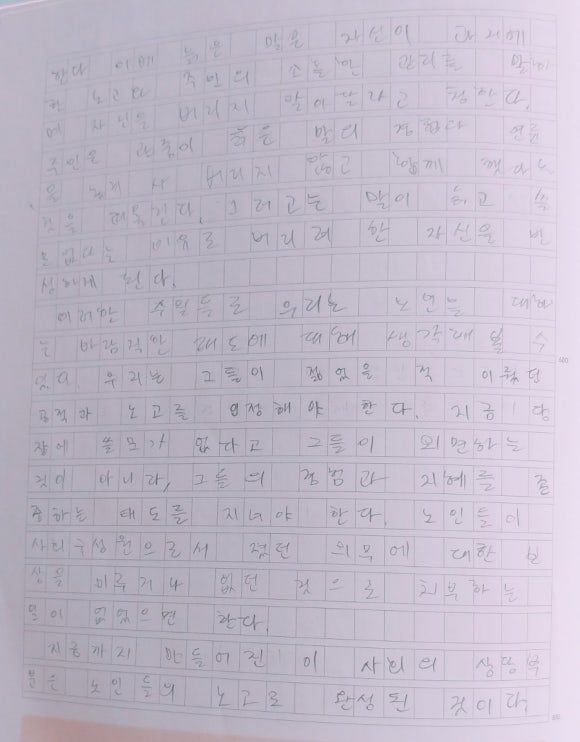 한다 이에 늙은 말은 자신이 과거에
한 노고와 주인의 소홀한 관리를 말하
며 자신을 버리지 말아달라고 청한다.
주인은 관중이 늙은 말의 경험과 연륜
버리지 않고 함께
것을 깨닫는다. 그러고는 말이 늙고 쓸
모없다는 이유로 버리려 한 자신을 반
성하게 된다.
이러한 수필들로 우리는 노년을 대하
는 바람직한 태도에 대해 생각해 볼 수
있다. 우리는 그들이 젊었을 적 이뤘던
업적과 노고를 인정해야 한다. 지금 당
장에 쓸모가 없다고 그들이 외면하는
것이 아니라, 그들의 경험과 지혜를 존
중하는 태도를 지녀야 한다. 노인들이
사회구성원으로서 졌던 의무에 대한 보
상을 미루거나 없던 것으로 치부하는
일이 없었으면 한다.
지금까지 만들어진 이 사회의 상당 부
분은 노인들의 노고로 완성된 것이다.